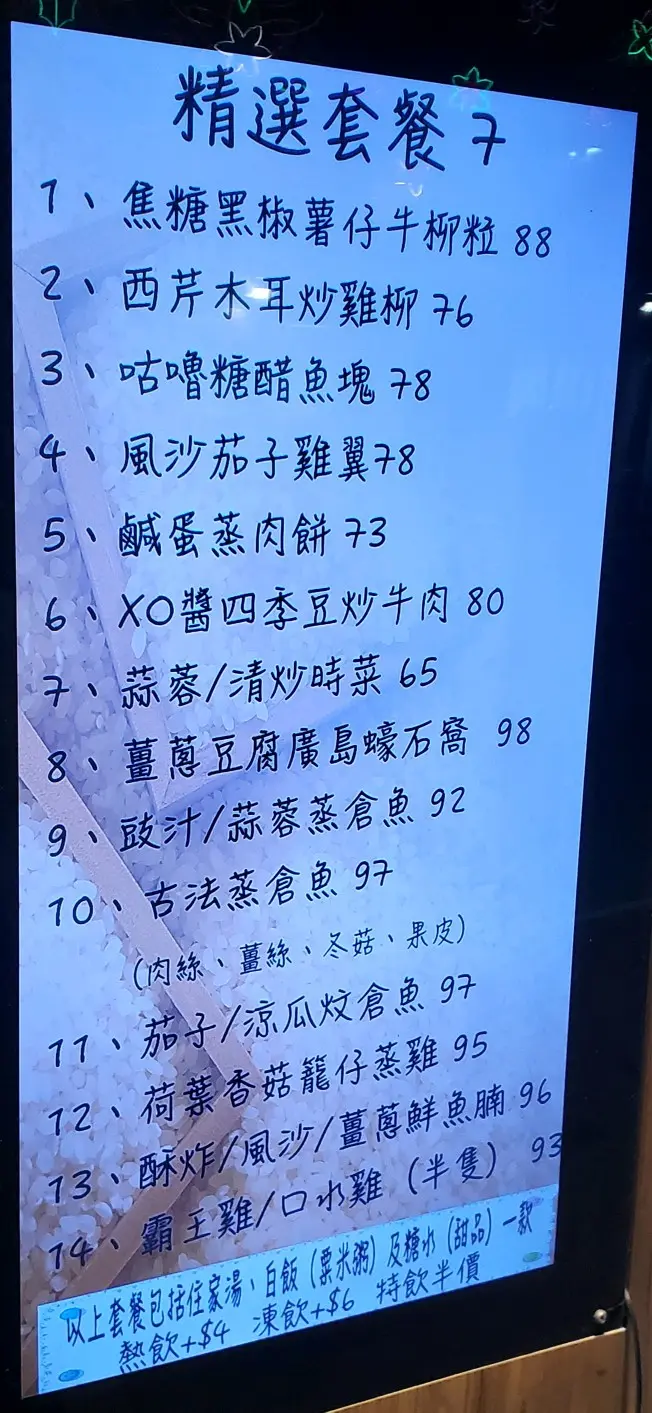 精選套餐7
1、焦糖黑椒薯仔牛柳粒 88
2、西芹木耳炒雞柳 76
3、咕嚕糖醋魚塊 78
4、風沙茄子雞翼78
5、鹹蛋蒸肉餅 73
6、XO醬四季豆炒牛肉 80
7、蒜蓉/清炒時菜 65
8、薑蔥豆腐廣島蠔石窩 98
9、豉汁/蒜蓉蒸倉魚 92
10、古法蒸倉魚 97
(肉絲、薑絲、冬菇、果皮)
11、茄子/涼瓜炆倉魚 97
12、荷葉香菇籠仔蒸雞 95
13、酥炸/風沙/薑蔥鮮魚腩 96
14、霸王雞/口水雞 (半隻) 93
以上套餐包括住家湯、白飯(粟米粥)及糖水(甜品)一款
熱飲+$4 凍飲+$6 特飲半價